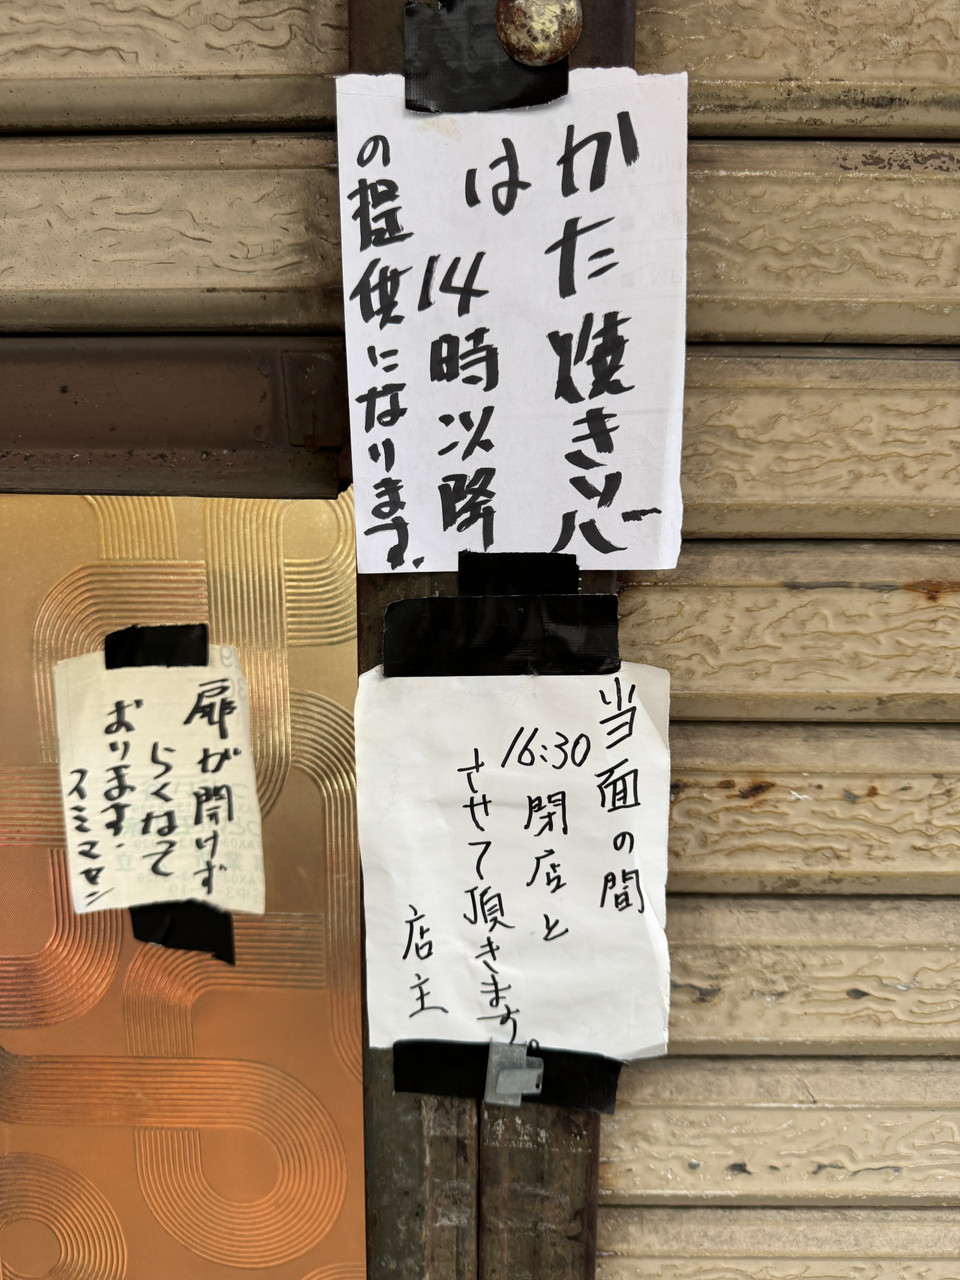 かた焼きソバ
は14時以降
の提供になります.
当面の間
16:30閉店と
させて頂きます。
店主
扉が開けず
らくなて
おります.
スミマセン